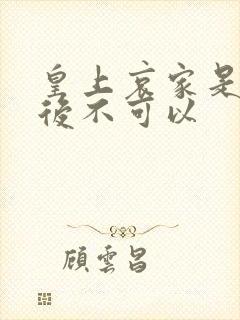 皇上哀家是
後不可以
顧雲昌